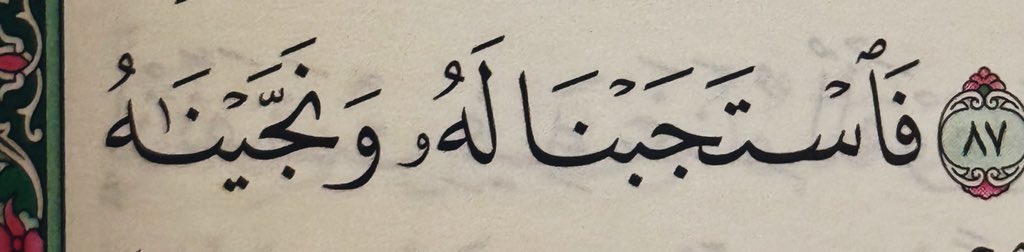 ٨٧ فَٱسْتَجَبْنَا لَهُۥ وَنَجَّيْنَٰهُ